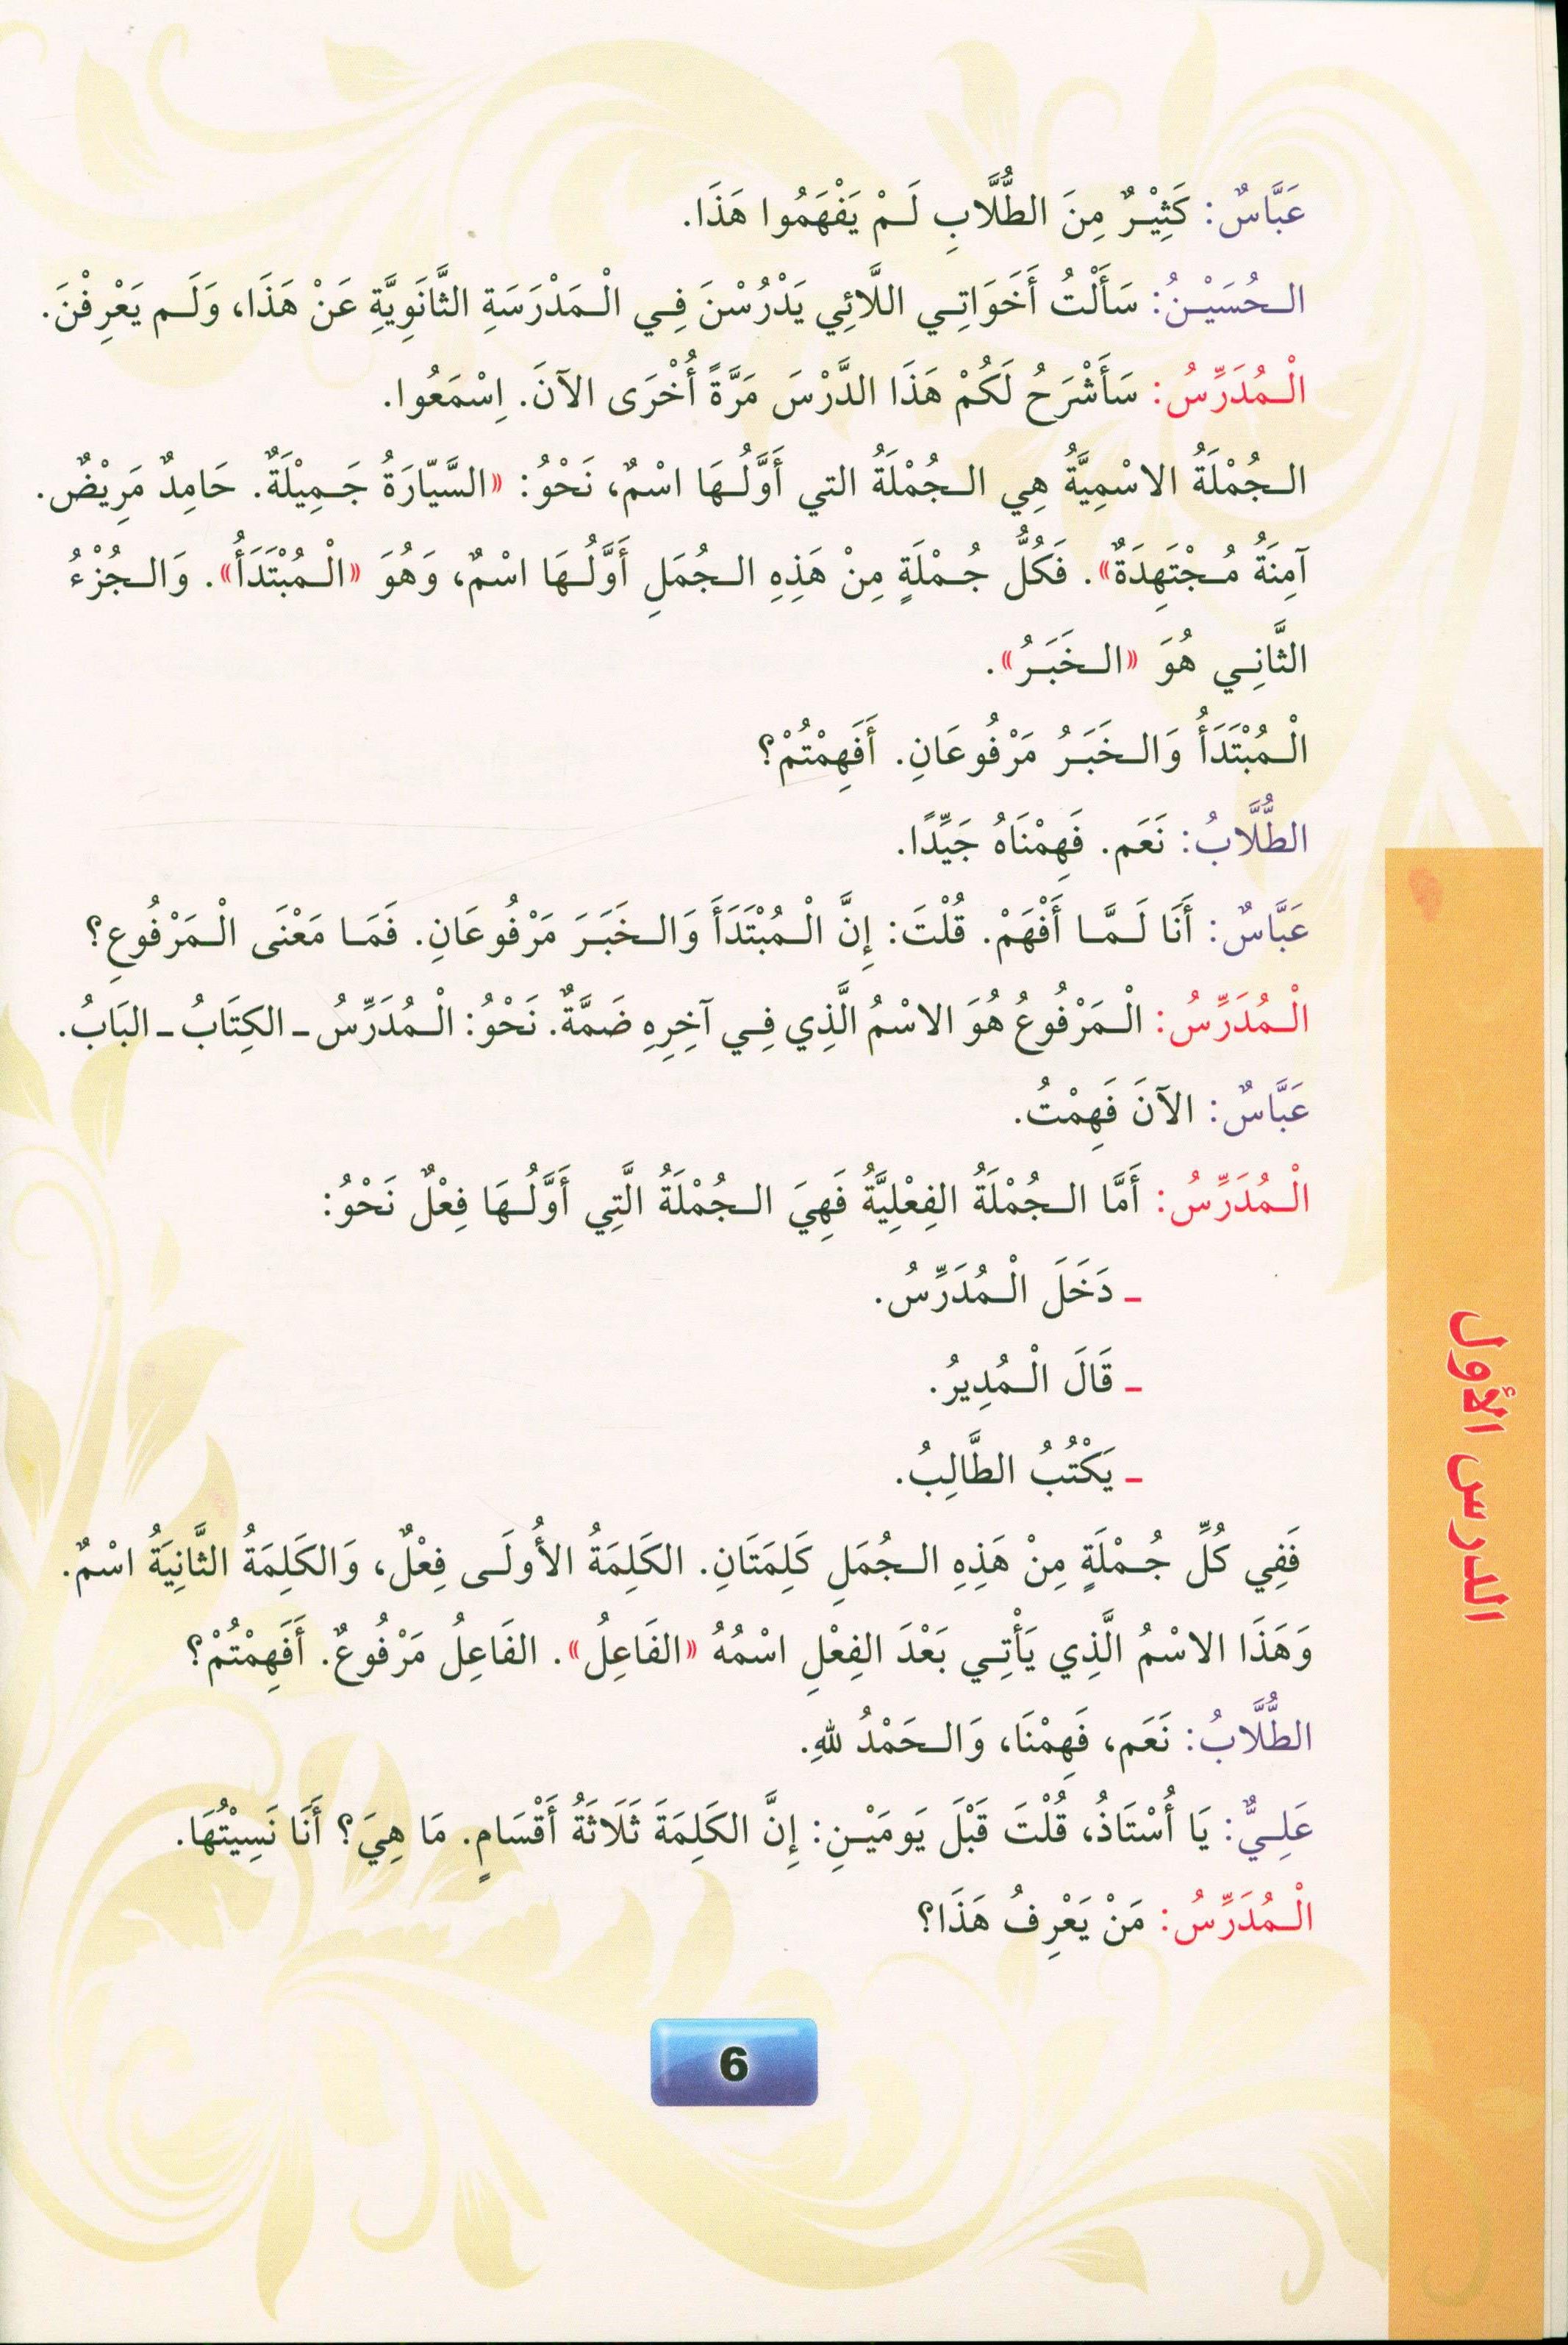 عَبَّاسٌ: كَثِيْرٌ مِنَ الطُّلَّابِ لَمْ يَفْهَمُوا هَذَا.
الحُسَيْنُ: سَأَلْتُ أَخَوَاتِي اللَّائِي يَدْرُسْنَ فِي الْمَدْرَسَةِ الثَّانَوِيَّةِ عَنْ هَذَا، وَلَم يَعْرِفْنَ.
الْمُدَرِّسُ: سَأَشْرَحُ لَكُمْ هَذَا الدَّرْسَ مَرَّةً أُخْرَى الآنَ. اِسْمَعُوا.
الجُمْلَةُ الاسْمِيَّةُ هِي الجُمْلَةُ التي أَوَّلُهَا اسْمٌ، نَحْوُ: «السَّيّارَةُ جَمِيْلَةٌ. حَامِدٌ مَرِيْضٌ.
آمِنَةُ مُجْتَهِدَةٌ». فَكُلُّ جُمْلَةٍ مِنْ هَذِهِ الجُمَلِ أَوَّلُهَا اسْمٌ، وَهُوَ «الْمُبْتَدَأُ». وَالجُزْءُ
الثَّانِي هُوَ «الخَبَرُ».
الْمُبْتَدَأُ وَالخَبَرُ مَرْفُوعَانِ. أَفَهِمْتُمْ؟
الطُّلَّابُ: نَعَم. فَهِمْنَاهُ جَيِّدًا.
عَبَّاسٌ: أَنَا لَمَّا أَفْهَمْ. قُلْتَ: إِنَّ الْمُبْتَدَأَ وَالخَبَرَ مَرْفُوعَانِ. فَمَا مَعْنَى الْمَرْفُوعِ؟
الْمُدَرِّسُ: الْمَرْفُوعُ هُوَ الاسْمُ الَّذِي فِي آخِرِهِ ضَمَّةٌ. نَحْوُ: الْمُدَرِّسُ ـ الكِتَابُ ـ البَابُ.
عَبَّاسٌ: الآنَ فَهِمْتُ.
الْمُدَرِّسُ: أَمَّا الجُمْلَةُ الفِعْلِيَّةُ فَهِيَ الجُمْلَةُ الَّتِي أَوَّلُهَا فِعْلٌ نَحْوُ:
ـ دَخَلَ الْمُدَرِّسُ.
ـ قَالَ الْمُدِيرُ.
ـ يَكْتُبُ الطَّالِبُ.
فَفِي كُلِّ جُمْلَةٍ مِنْ هَذِهِ الجُمَلِ كَلِمَتَانِ. الكَلِمَةُ الأُولَى فِعْلٌ، وَالكَلِمَةُ الثَّانِيَةُ اسْمٌ.
وَهَذَا الاسْمُ الَّذِي يَأْتِي بَعْدَ الفِعْلِ اسْمُهُ «الفَاعِلُ». الفَاعِلُ مَرْفُوعٌ. أَفَهِمْتُمْ؟
الطُّلَّابُ: نَعَم، فَهِمْنَا، وَالحَمْدُ للهِ.
عَلِيٌّ: يَا أُسْتَاذُ، قُلْتَ قَبْلَ يَومَيْنِ: إِنَّ الكَلِمَةَ ثَلَاثَةُ أَقْسَامٍ. مَا هِيَ؟ أَنَا نَسِيْتُهَا.
الْمُدَرِّسُ: مَنْ يَعْرِفُ هَذَا؟
6
الدرس الأول